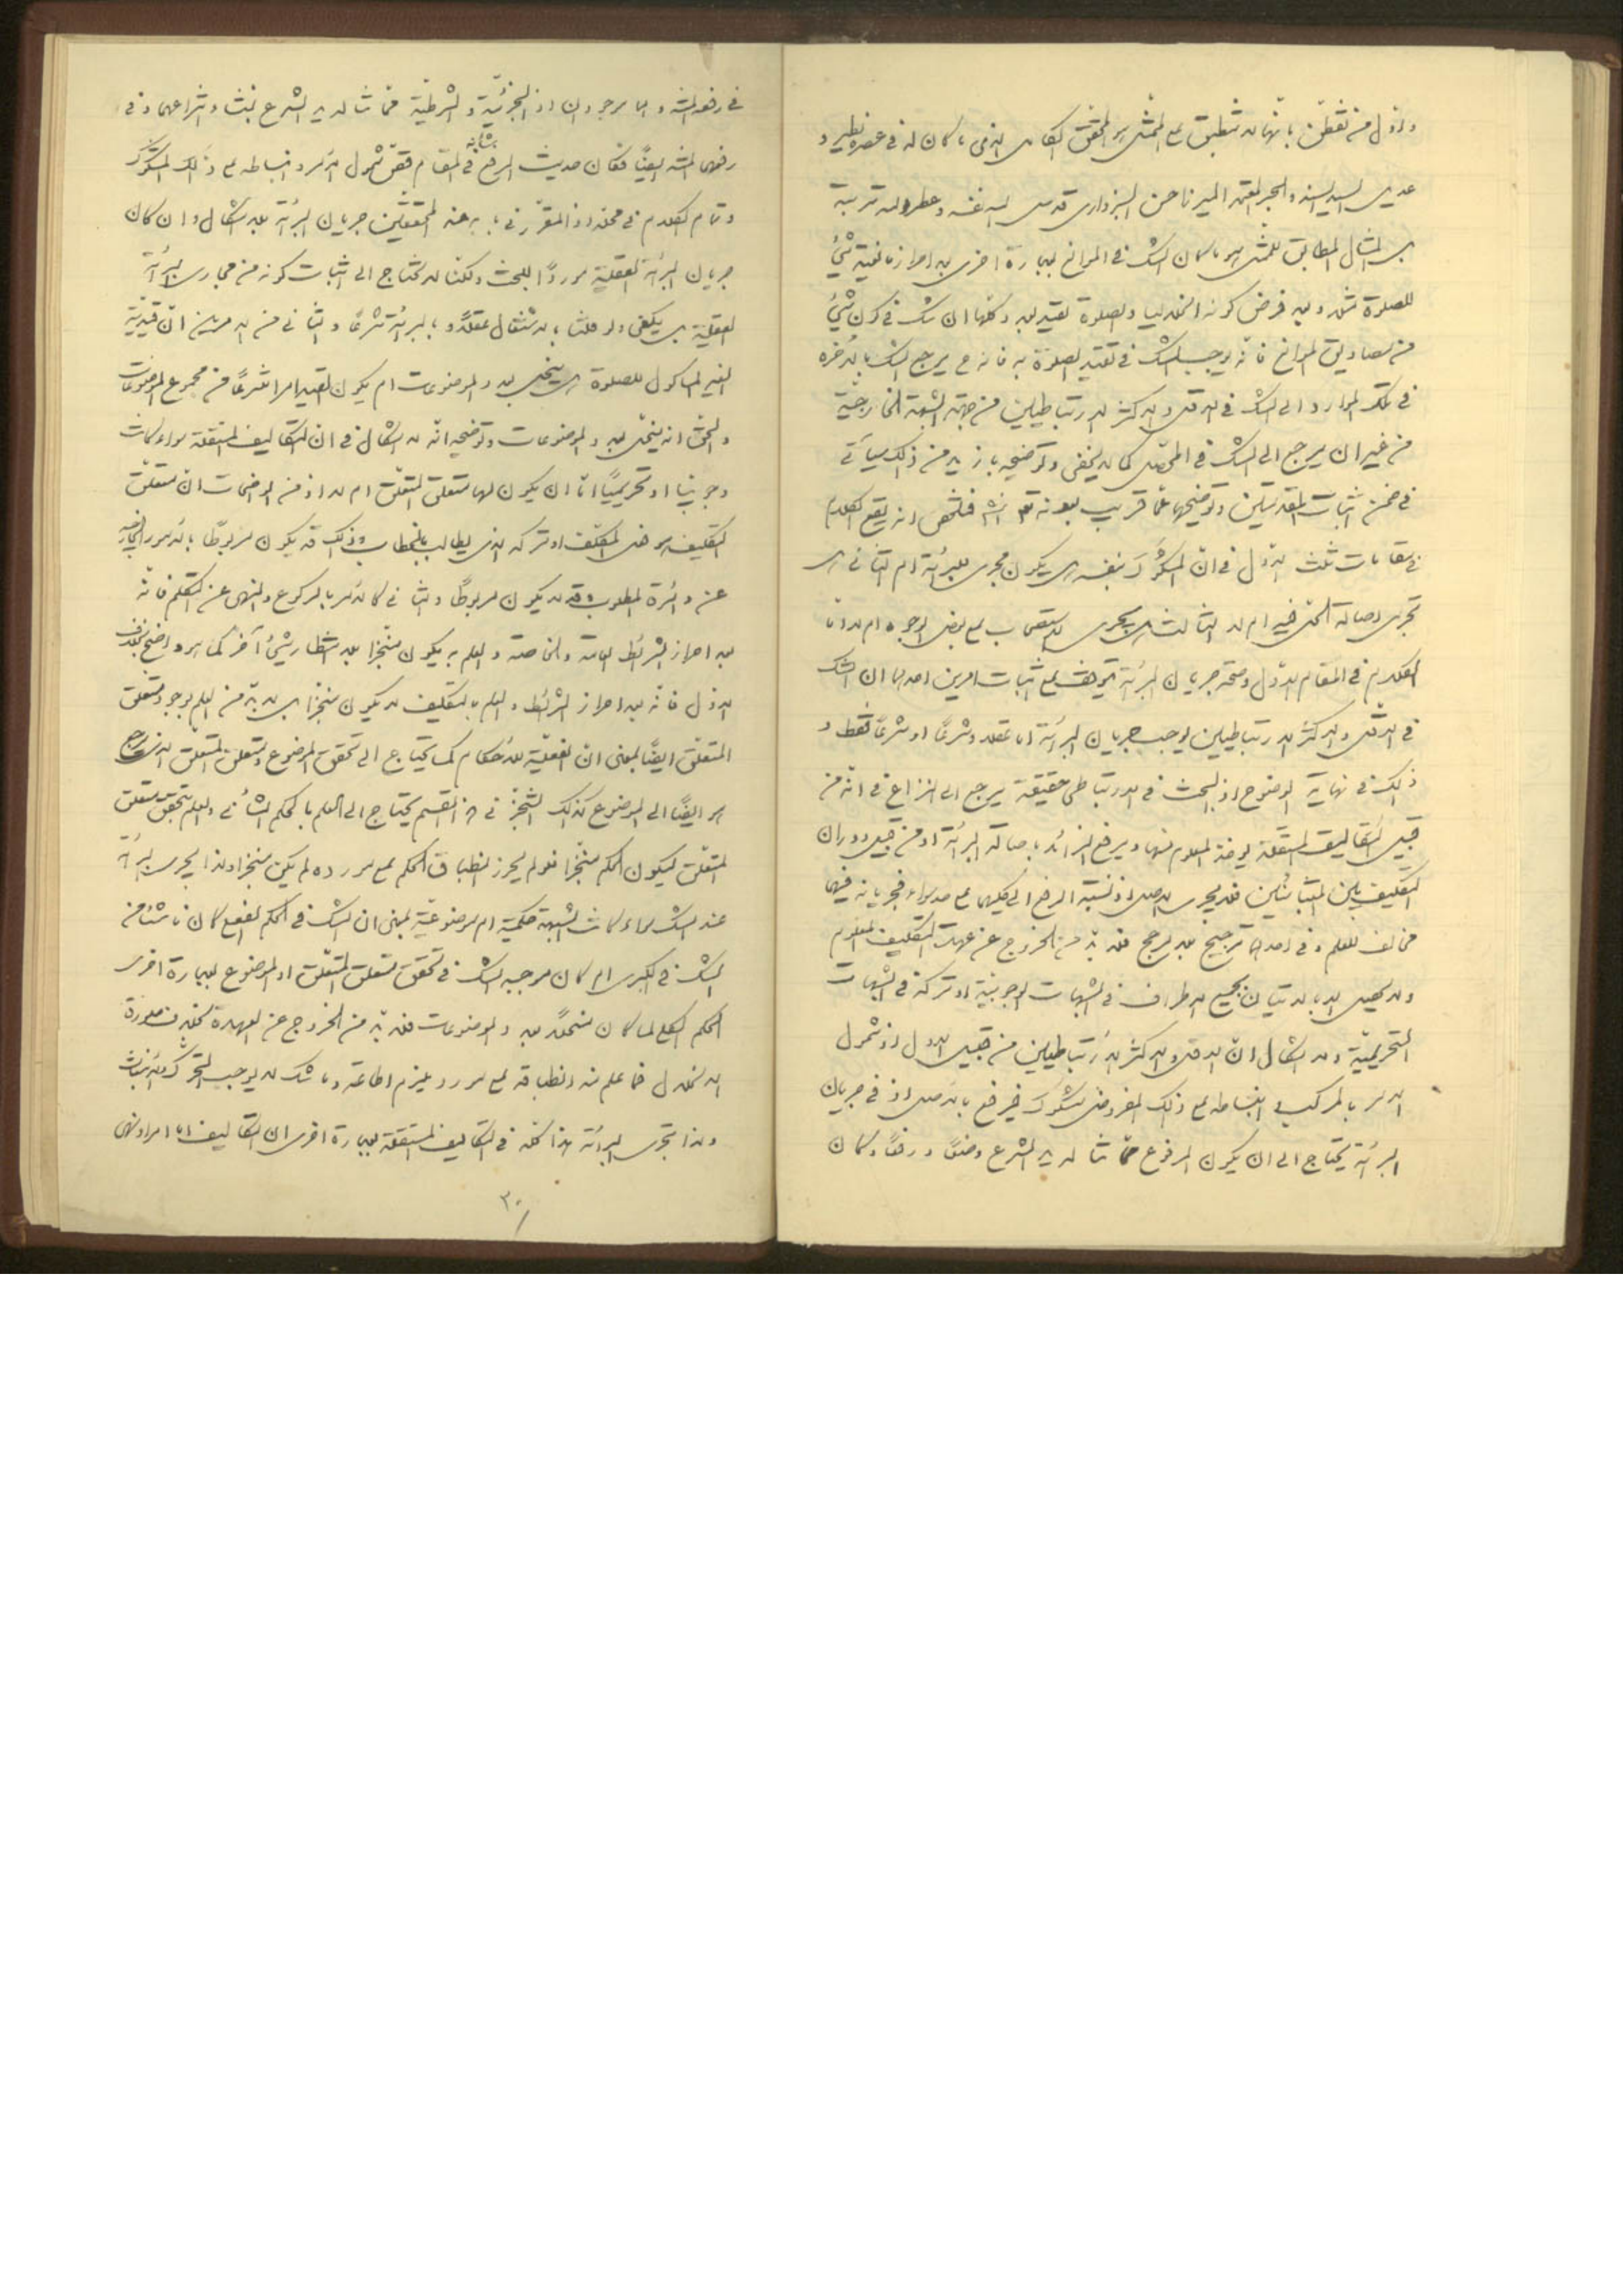 واول من تفطّن بانها لا تنطبق على الممثل هو المحقق الكامل الذى ما كان له فى عصره نظير و
عديل السيد السند والحبر المعتمد الميرزا حسن السبزوارى قدس الله نفسه وعطر الله تربته
بل المثال المطابق للممثل هو ما كان الشك فى الموانع بعبارة اخرى بعد احراز مانعية شئ
للصلوة مثلا وبعد فرض كونه انحلاليا والصلوة تقيد به وكلها ان شك فى كون شئ
من مصاديق الموانع فانه يوجب الشك فى تقيد الصلوة به فانه ح يرجع الشك بالاخره
فى تلك الموارد الى الشك فى الاقل والاكثر الارتباطيين من جهة الشبهة الخارجية
من غير ان يرجع الى الشك فى المحصل كما لا يخفى وتوضيحه بازيد من ذلك سيأتى
فى ضمن اثبات المقدمتين وتوضيحها عما قريب بعونه تع انش فلتخص انه يقع الكلام
فى مقامات ثلث الاول فى ان المشكوك بنفسه هل يكون مجرى للبرائة ام لا الثانى هل
تجرى اصالة الحل فيه ام لا الثالث هل يجرى الاستصحاب على بعض الوجوه ام لا اما
الكلام فى المقام الاول وصحة جريان البرائة يتوقف على اثبات امرين احدهما ان الشك
فى الاقل والاكثر الارتباطيين يوجب جريان البرائة اما عقلا وشرعا او شرعا فقط و
ذلك فى نهاية الوضوح اذ البحث فى الارتباطى حقيقة يرجع الى النزاع فى انه من
قبيل التكاليف المستقلة يؤخذ المعلوم منها ويرفع الزائد باصالة البرائة او من قبيل دوران
التكليف بين المتباينين فلا يجرى الاصل اذ نسبة الرفع الى كليهما على حد سواء فجريانه فيهما
مخالف للعلم وفى احدهما ترجيح بلا مرجح فلابد من الخروج عن عهدة التكليف المعلوم
ولا يحصل الا بالاتيان بجميع الاطراف فى الشبهات الوجوبية او تركه فى الشبهات
التحريمية ولا اشكال ان الاقل والاكثر الارتباطيين من قبيل الاول اذ شمول
الامر بالمركب وانبساطه على ذلك المفروض مشكوك فيرفع بالاصل اذ فى جريان
البرائة يحتاج الى ان يكون المرفوع مما تناله يد الشرع وضعا ورفعا وكان
فى رفعه المنة وهما موجودان اذ الجزئية والشرطية مما تناله يد الشرع بمنشأ انتزاعهما وفى
رفعهما المنة ايضا فكان حديث الرفع بشأنه فى المقام فقئ شمول الامر وانبساطه على ذلك المشكوك
وتمام الكلام فى محله اذ المقرر فى بابه عند المحققين جريان البرائة بلا اشكال وان كان
جريان البرائة العقلية موردا للبحث ولكنا لا نحتاج الى اثبات كونه من مجارى البرائة
العقلية بل يكفى ولو قلنا بالاشتغال عقلا وبالبرائة شرعا والثانى من الامرين ان قيدية
الغير المأكول للصلوة هل ينحل بعدد الموضوعات ام يكون تقيدا امرا شرعا من مجموع الموضوعات
والحق انه ينحل بعدد الموضوعات وتوضيحه انه لا اشكال فى ان التكاليف المستقلة سواء كانت
وجوبيا او تحريميا اما ان يكون لها متعلق المتعلق ام لا اذ من الواضحات ان متعلق
التكليف هو فعل المكلف او تركه الذى يطالب بالخطاب وذلك قد يكون مربوطا بالامور الخارجة
عن دائرة المطلوب وقد لا يكون مربوطا والثانى كالامر بالركوع والنهى عن التكلم فانه
بعد احراز الشرائط العامة والخاصة والعلم به يكون منجزا بلا انتظار شئ آخر كما هو واضح بخلاف
الاول فانه بعد احراز الشرائط والعلم بالتكليف لا يكون منجزا بل لابد من العلم بوجود متعلق
المتعلق ايضا بمعنى ان الفعلية للاحكام كما يحتاج الى تحقق الموضوع ومتعلق المتعلق الذى يرجع
هو ايضا الى الموضوع كذلك التنجز فى هذا القسم يحتاج الى العلم بالحكم الشأنى والعلم بتحقق متعلق
المتعلق ليكون الحكم منجزا فلو لم يحرز انطباق الحكم على مورده لم يكن منجزا ولذا يجرى البرائة
عند الشك سواء كانت الشبهة حكمية ام موضوعية بمعنى ان الشك فى الحكم الفعلى كان ناشئا من
الشك فى الكبرى ام كان موجبه الشك فى تحقق متعلق المتعلق او الموضوع بعبارة اخرى
الحكم الكلى لما كان منحلا بعدد الموضوعات فلابد من الخروج عن العهدة لكن بصورة
الانحلال فما علم منه انطباقه على مورد يلزم اطاعته وما شك لا يوجب التحرك والانبعاث
ولذا تجرى البرائة هذا كله فى التكاليف المستقلة بعبارة اخرى ان التكاليف اما امر او نهى
٣٠